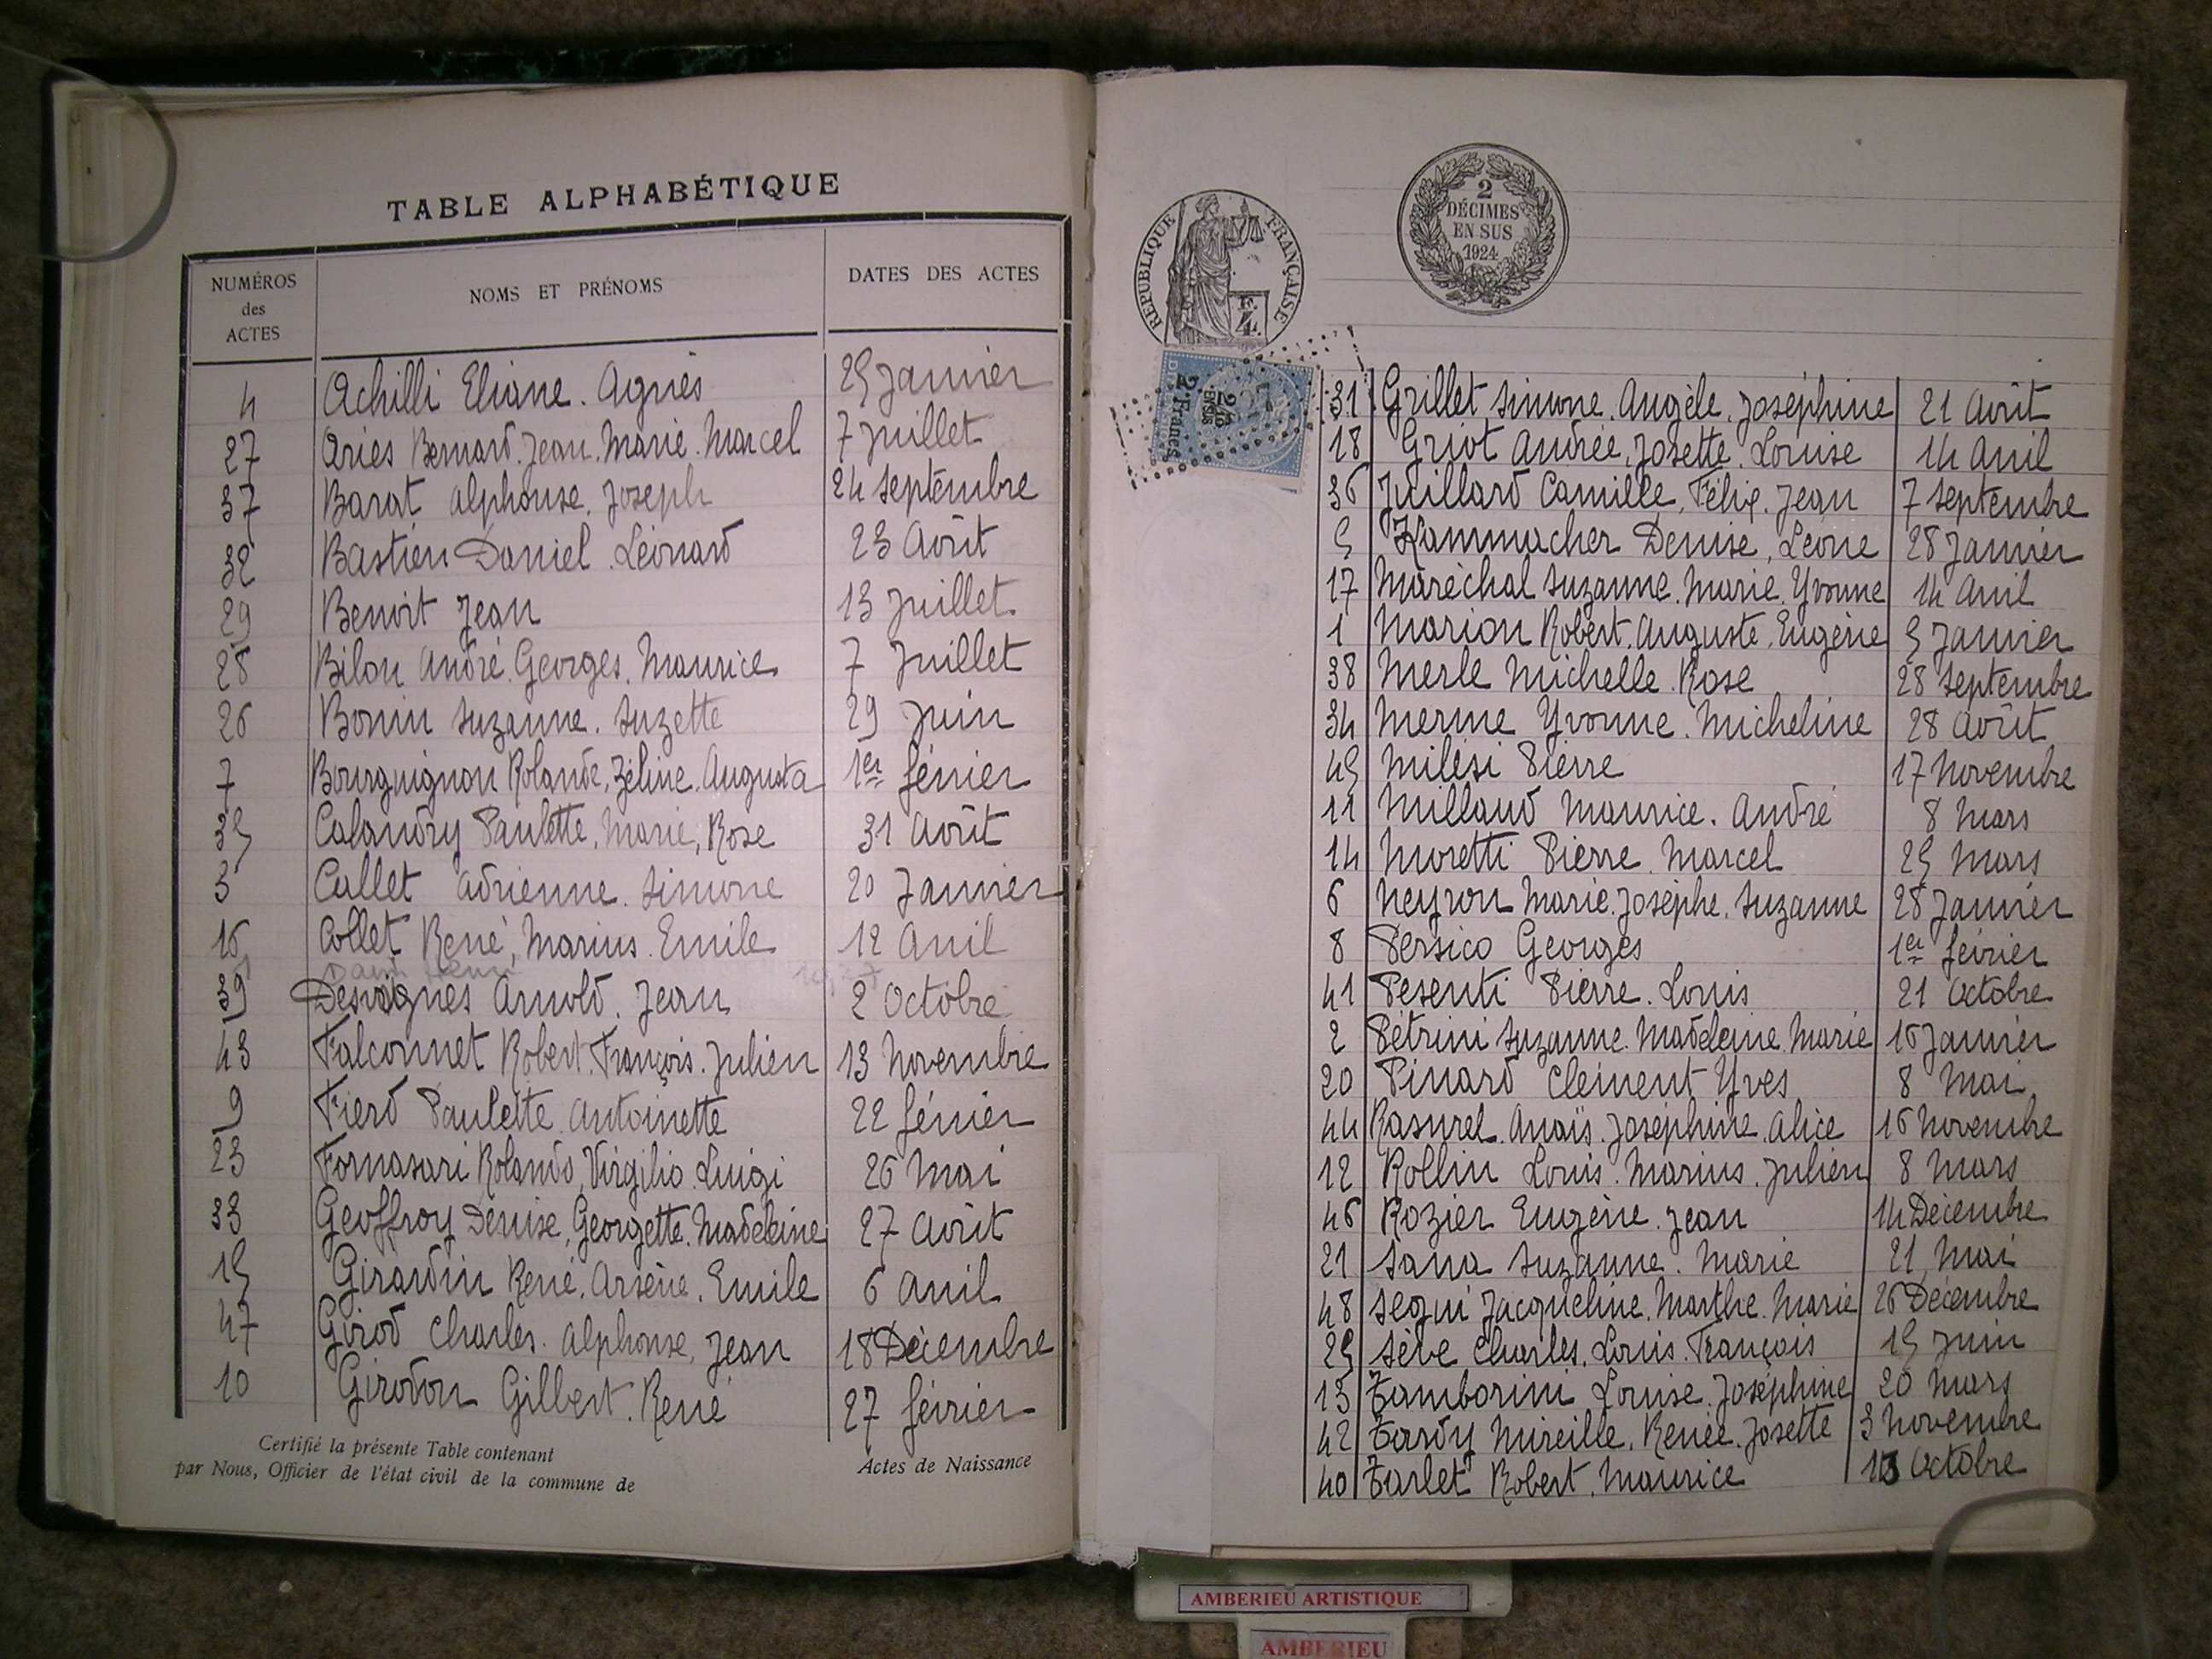 TABLE ALPHABÉTIQUE
NUMÉROS des ACTES NOMS ET PRÉNOMS DATES DES ACTES
4 Achilli Eliane. Agnès 25 Janvier
27 Ariès Bernard. Jean. Marie. Marcel 7 Juillet
37 Barat Alphonse. Joseph 24 Septembre
32 Bastien Daniel. Léonard 23 Août
29 Benoit Jean 13 Juillet
28 Bilon André. Georges. Maurice 7 Juillet
26 Bonin Suzanne. Suzette 29 Juin
7 Bourguignon Rolande, Zéline. Augusta 1er février
35 Calandry Paulette, Marie, Rose 31 Août
3 Callet Adrienne. Simone 20 Janvier
16 Collet René, Marius. Emile 12 Avril
39 Desvignes Arnold. Jean 2 Octobre
43 Falconnet Robert. François. Julien 13 Novembre
9 Fierd Paulette Antoinette 22 février
23 Fornasari Rolando, Virgilio. Luigi 26 Mai
33 Geoffroy Denise, Georgette. Madeleine 27 Août
15 Girardin René. Arsène. Emile 6 Avril
47 Girod Charles. Alphonse, Jean 18 Décembre
10 Girodon Gilbert. René 27 février
Certifié la présente Table contenant Actes de Naissance
par Nous, Officier de l'état civil de la commune de
REPUBLIQUE FRANÇAISE
2
DÉCIMES
EN SUS
1924
2 Francs
31 Grillet Simone. Angèle. Joséphine 21 Août
18 Griot Andrée, Josette. Louise 14 Avril
36 Juillard Camille, Félix. Jean 7 Septembre
5 Kammacher Denise, Léone 28 Janvier
17 Maréchal Suzanne. Marie. Yvonne 14 Avril
1 Marion Robert. Auguste. Eugène 5 Janvier
38 Merle Michelle. Rose 28 Septembre
34 Merme Yvonne. Micheline 28 Août
45 Milési Pierre 17 Novembre
11 Millaud Maurice. André 8 Mars
14 Moretti Pierre. Marcel 25 Mars
6 Neyron Marie. Josèphe. Suzanne 28 Janvier
8 Persico Georges 1er février
41 Pesenti Pierre. Louis 21 Octobre
2 Pétrini Suzanne. Madeleine. Marie 16 Janvier
20 Pinard Clément Yves 8 Mai
44 Rasurel. Anaïs. Joséphine. Alice 16 Novembre
12 Rollin Louis. Marius. Julien 8 Mars
46 Rozier Eugène. Jean 14 Décembre
21 Sana Suzanne. Marie 21 Mai
48 Segui Jacqueline. Marthe. Marie 26 Décembre
25 Sève Charles. Louis. François 15 Juin
13 Tamborini Louise. Joséphine 20 Mars
42 Tardy Mireille. Renée. Josette 3 Novembre
40 Tarlet Robert. Maurice 13 Octobre
AMBERIEU ARTISTIQUE
AMBERIEU